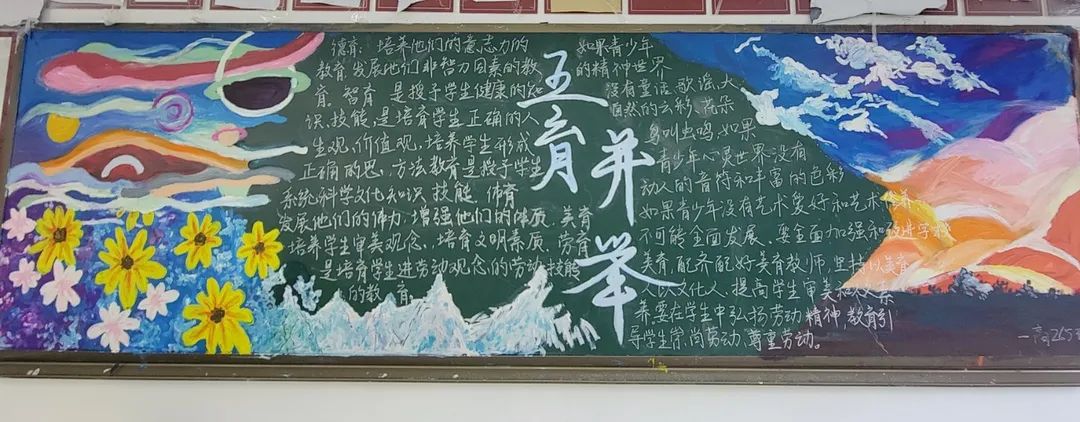 德育：培养他们的意志力的
教育，发展他们非智力因素的教
育。智育 是授予学生健康的知
识、技能，是培育学生正确的人
生观，价值观，培养学生形成
正确的思，方法教育是授予学生
系统科学文化知识、技能 体育
发展他们的体力，增强他们的体质，美育
培养学生审美观念，培育文明素质，劳育
是培育学生进劳动观念的劳动技能
的教育。
五育并举
如果青少年
的精神世界
没有童话，歌谣，大
自然的云彩，花朵
鸟叫虫鸣，如果
青少年心灵世界没有
动人的音符和丰富的色彩
如果青少年没有艺术爱好和艺术修养
不可能全面发展、要全面加强和改进学校
美育，配齐配好美育教师，坚持以美育
人以文化人，提高学生审美和人文素
养，要在学生中弘扬劳动精神，教育引
导学生崇尚劳动、尊重劳动。
一高2653